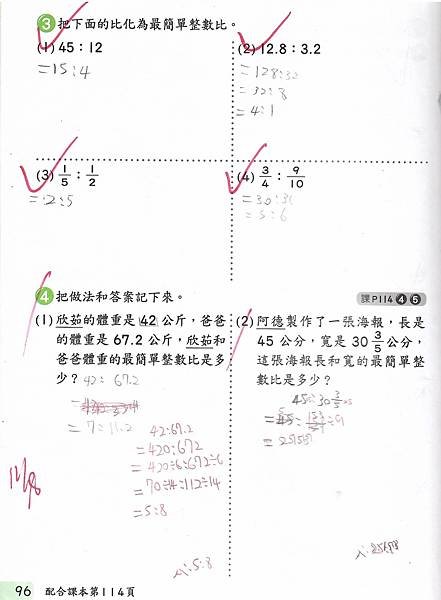 3 把下面的比化為最簡單整數比。
(1) 45：12
=15：4
(2) 12.8：3.2
=128：32
=32：8
=4：1
(3) 1/5：1/2
=2：5
(4) 3/4：9/10
=30：36
=5：6
4 把做法和答案記下來。
課P114 4 5
(1) 欣茹的體重是 42 公斤，爸爸
的體重是 67.2 公斤，欣茹和
爸爸體重的最簡單整數比是多
少？ 42：67.2
=7：11.2
42：67.2
=420：672
=420÷6：672÷6
=70÷14：112÷14
=5：8
A：5：8
(2) 阿德製作了一張海報，長是
45 公分，寬是 30 3/5 公分，
這張海報長和寬的最簡單整
數比是多少？
45：30 3/5
11/8
96 配合課本第114頁